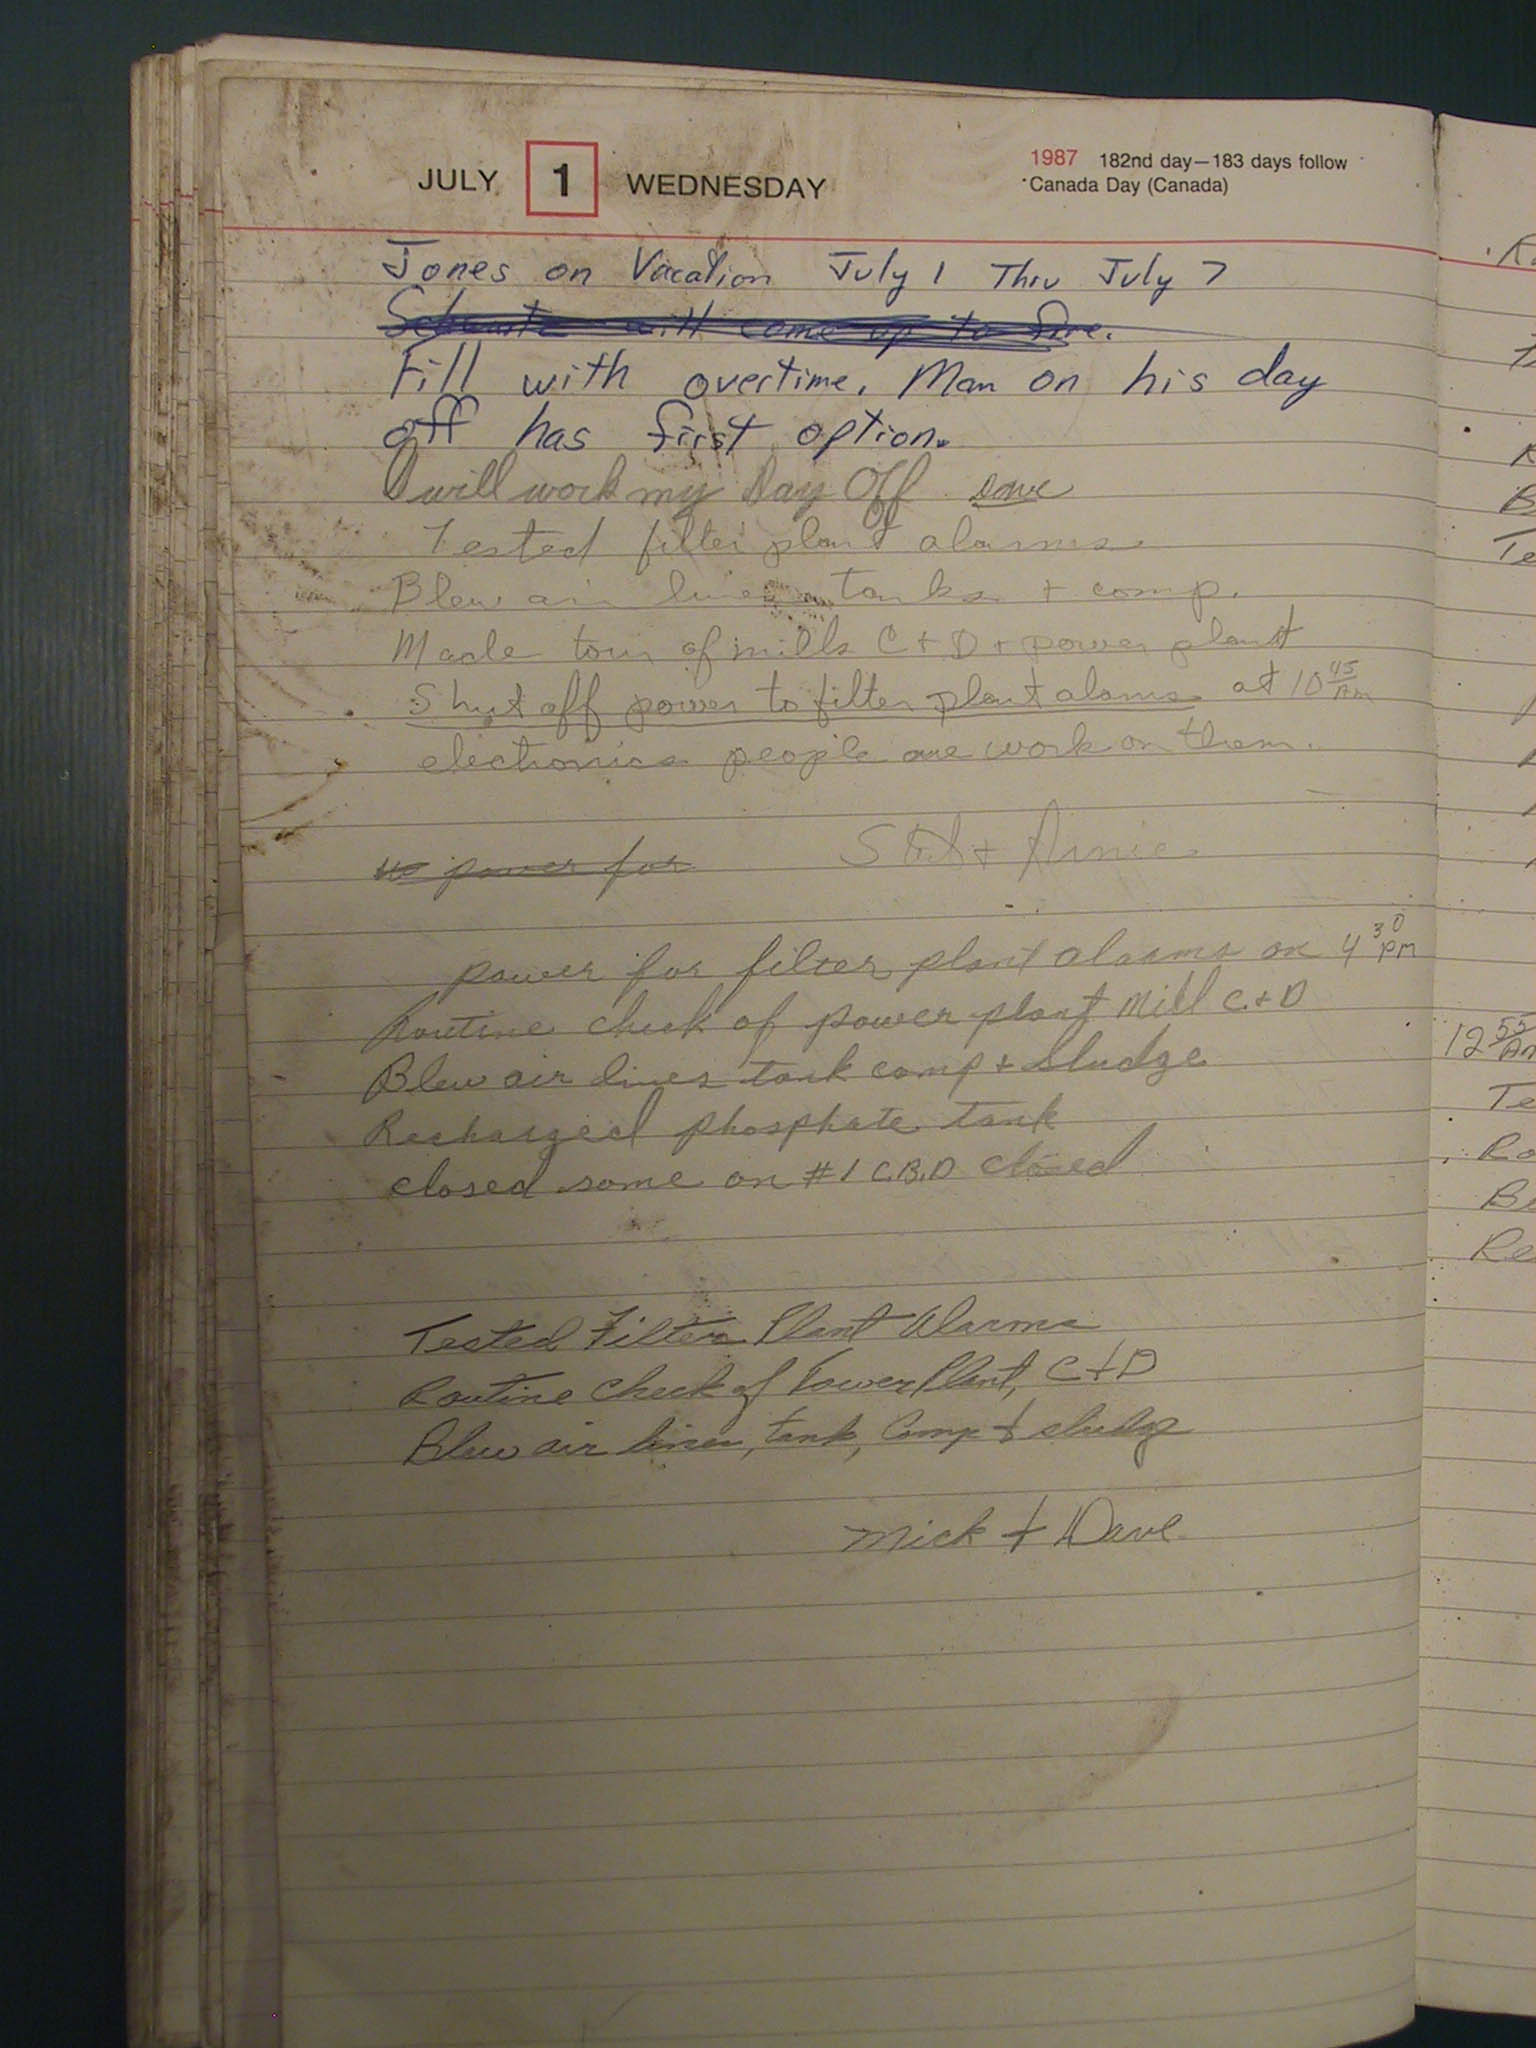 JULY 1 WEDNESDAY
1987 182nd day—183 days follow
Canada Day (Canada)
Jones on Vacation July 1 Thru July 7
will come up to fire.
Fill with overtime. Man on his day
off has first option.
I will work my Day Off Dave
Tested filter plant alarms
Blew air lines tanks + comp.
Made tour of mills C + D + power plant
Shut off power to filter plant alarms at 10 45 Am
electronics people are work on them.
+ Arnie
no power for
power for filter plant alarms on 4 30 pm
Routine check of power plant Mill C + D
Blew air lines tank comp + sludge
Recharged phosphate tank
closed some on #1 C.B.D closed
Tested Filter Plant Alarms
Routine Check of Power Plant, C + D
Blew air lines, tank, Comp + sludge
Mick + Dave
12 55
Te
Ro
Re